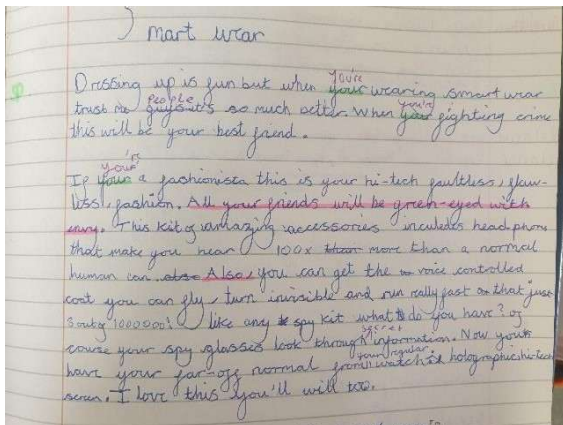 Smart wear
Dressing up is fun but when you're wearing smart wear
trust me people it's so much better. When you're fighting crime
this will be your best friend.
If you're a fashionista this is your hi-tech faultless, flaw-
less, fashion. All your friends will be green-eyed with
envy. This kit of amazing accessories inculeds headphone
that make you hear 100x more than a normal
human can. Also, you can get the voice controlled
coat you can fly, turn invisible and run really fast that just
3 out of 1000000! like any spy kit what do you have? of
course your spy glasses look through secret information. Now
have your far-off normal from your regular watch holographic hi-tech
screen. I love this you'll will too.